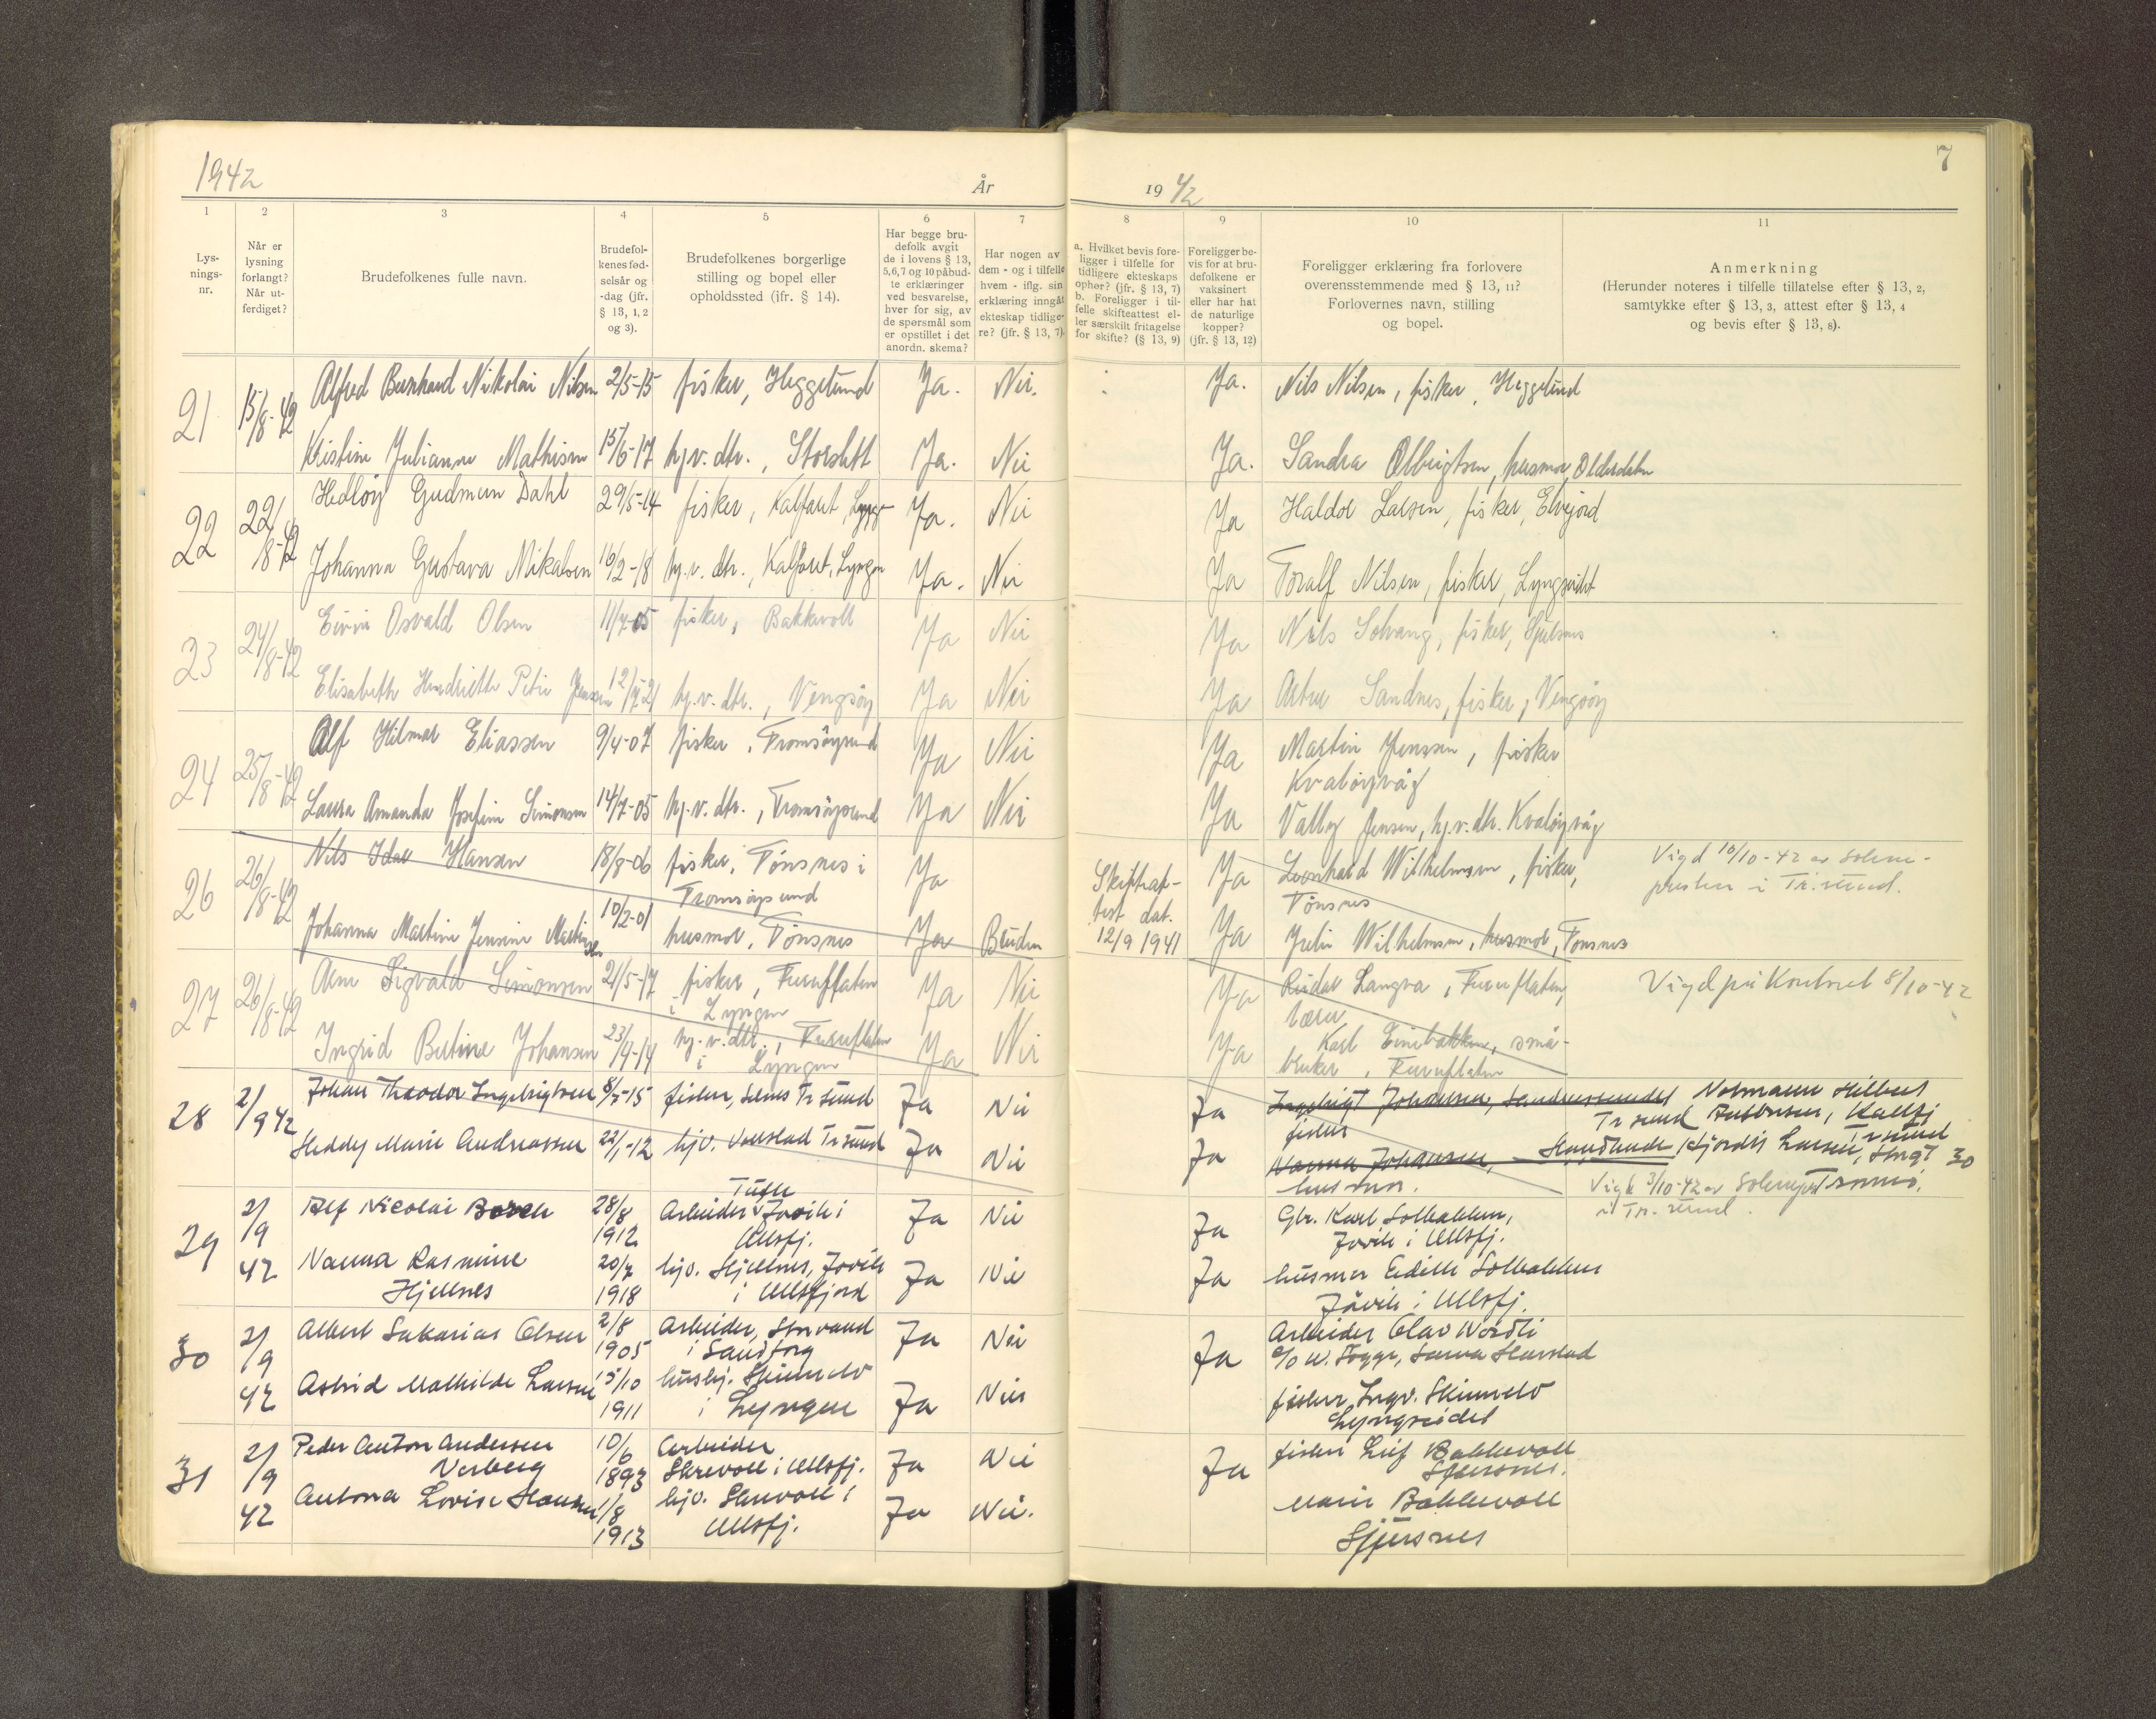 1942
År
19 42
7
1
2
3
4
5
6
7
8
9
10
11
Lys-
nings-
nr.
Når er
lysning
forlangt?
Når ut-
ferdiget?
Brudefolkenes fulle navn.
Brudefol-
kenes fød-
selsår og
-dag (jfr.
§ 13, 1, 2
og 3).
Brudefolkenes borgerlige
stilling og bopel eller
opholdssted (ifr. § 14).
Har begge bru-
defolk avgit
de i lovens § 13,
5,6,7 og 10 påbud-
te erklæringer
ved besvarelse,
hver for sig, av
de spørsmål som
er opstillet i det
anordn. skema?
Har nogen av
dem - og i tilfelle
hvem - iflg. sin
erklæring inngått
ekteskap tidlige-
re? (jfr. § 13, 7)
a. Hvilket bevis fore-
ligger i tilfelle for
tidligere ekteskaps
ophør? (jfr. § 13, 7)
b. Foreligger i til-
felle skifteattest el-
ler særskilt fritagelse
for skifte? (§ 13, 9)
Foreligger be-
vis for at bru-
defolkene er
vaksinert
eller har hat
de naturlige
kopper?
(jfr. § 13, 12)
Foreligger erklæring fra forlovere
overensstemmende med § 13, 11?
Forlovernes navn, stilling
og bopel.
Anmerkning
(Herunder noteres i tilfelle tillatelse efter § 13, 2,
samtykke efter § 13, 3, attest efter § 13, 4
og bevis efter § 13, 8).
21 15/8-42 Alfred Bernhard Nikolai Nilsen 2/5-15 fisker, Heggelund Ja. Nei. Ja. Nils Nilsen, fisker, Heggelund
Kristine Julianne Mathisen 15/6-17 hj.v. dtr., Storslett Ja. Nei Ja. Sandra Olbrigtsen, husmor, Olderdalen
22 22/8-42 Hedley Gudmun Dahl 29/5-14 fisker, Kalfaret, Ja. Nei Ja Haldor Larsen, fisker, Elvejord
Johanna Gustava Mikalsen 16/2-18 hj.v. dtr., Kalfaret, Lyngen Ja. Nei Ja Toralf Nilsen, fisker, Lyngseidet
23 24/8-42 Osvald Olsen 11/7-05 fisker, Bakkevoll Ja Nei Ja Nils Solvang, fisker,
Elisabeth Hendriette Petra Jenssen 12/7-21 hj.v. dtr., Vengsöy Ja Nei Ja Artur Sandnes, fisker, Vengsöy
24 25/8-42 Alf Hilmar Eliassen 9/4-07 fisker, Tromsöysund Ja Nei Ja Martin Jenssen, fisker
Kvalöyvåg
Laura Amanda Josefine Simonsen 14/7-05 hj.v. dtr., Tromsöysund Ja Nei Ja Valby Jensen, hj.v. dtr. Kvalöyvåg
26 26/8-42 Nils Idar Hansen 18/8-06 fisker, Tönsnes i Ja Skiftat- Ja Leonhard Wilhelmsen, fisker, Vigd 10/10-42 av sokne-
Tromsöysund test dat. Tönsnes presten i Tr.sund.
Johanna Martine Jensine Martinsen 10/2-01 husmor, Tönsnes Ja Bruden 12/9 1941 Ja Julie Wilhelmsen, husmor, Tönsnes
27 26/8-42 Arne Sigvald Simonsen 21/5-17 fisker, Furuflaten Ja Nei Ja Reidar Langva, Furuflaten, Vigd på Kontoret 8/10-42
i Lyngen lærer
Ingrid Betine Johansen 23/4-14 hj.v. dtr., Furuflaten Ja Nei Ja Karl Einebakken, små-
i Lyngen bruker, Furuflaten
28 2/9 42 Johan Theodor Ingebrigtsen 8/7-15 fisker, Tr sund Ja Nei Ja Ingebrigt Johansen, Normann Hilbert
fisker Tr sund Kallfj
Tr sund
Heddy Marie Andreassen 22/1-12 hjv. Tr sund Ja Nei Ja Nanna Johansen, Hjördis Larsen, Storgt 30
husmor. Tromsö.
Vigd 3/10-42 av Soknepr.
i Tr. sund.
29 2/9 42 Alf Nicolai Borch 28/8 1912 Arbeider Jövik i Ja Nei Ja Gbr. Karl Solbakken,
Ullsfj. Jövik i Ullsfj.
Nanna Rasmine 20/7 1918 hjv. Hjellnes, Jövik Ja Nei Ja husmor Edith Solbakken
Hjellnes i Ullsfjord Jövik i Ullsfj.
30 2/9 42 Albert Sakarias Olsen 2/8 1905 Arbeider, Storvand Ja Nei Ja Arbeider Olav Nordli
i Sandtorg c/o W. Harstad
Astrid Mathilde Larsen 15/10 1911 hushj. Skinnelv Ja Nei fisker Ingv. Skinnelv
i Lyngen Lyngseidet
31 2/9 42 Peder Anton Andersen 10/6 1893 Arbeider Ja Nei Ja fisker Leif Bakkevoll
Verberg Skrevoll i Ullsfj. Sjursnes.
Antona Lovise Hansen 1/8 1913 hjv. Skrevoll i Ja Nei. Marie Bakkevoll
Ullsfj. Sjursnes